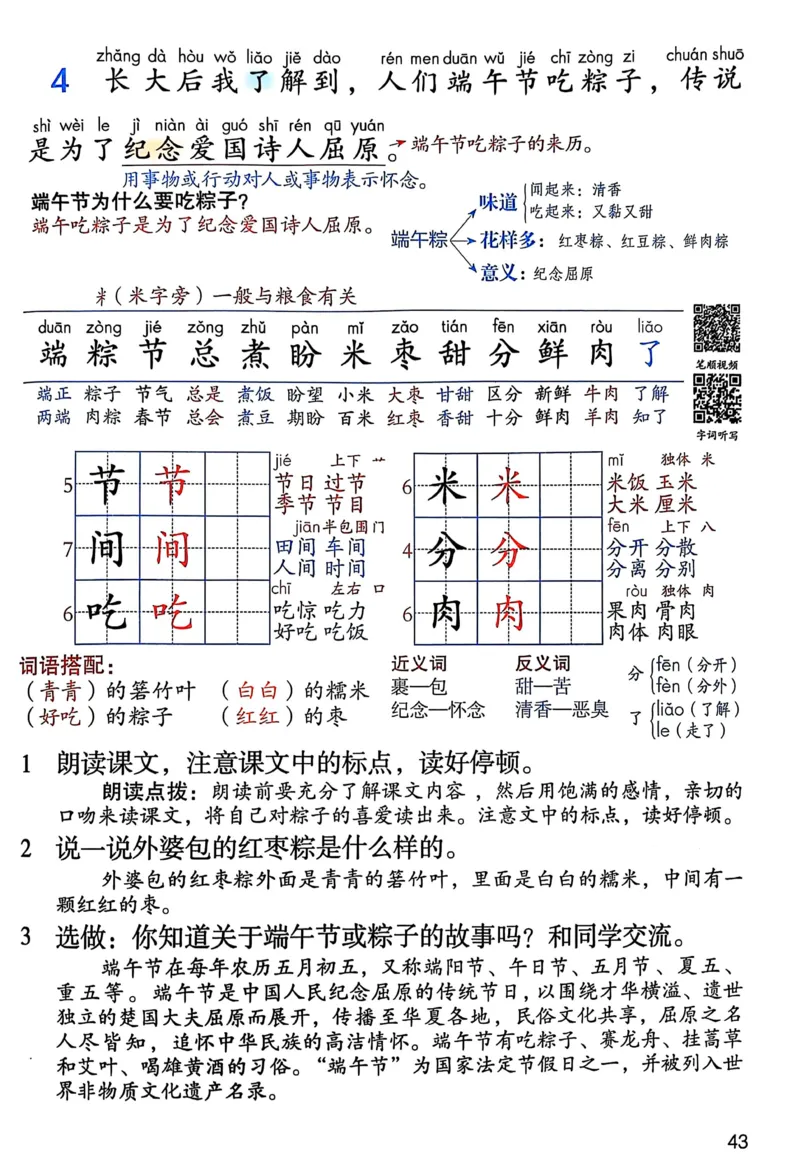 zhǎng dà hòu wǒ liǎo jiě dào rén men duān wǔ jié chī zòng zi chuán shuō
4 长大后我了解到，人们端午节吃粽子，传说
shì wèi le jì niàn ài guó shī rén qū yuán
是为了纪念爱国诗人屈原。端午节吃粽子的来历。
用事物或行动对人或事物表示怀念。
端午节为什么要吃粽子？
端午吃粽子是为了纪念爱国诗人屈原。
端午粽
味道
闻起来：清香
吃起来：又黏又甜
花样多：红枣粽、红豆粽、鲜肉粽
意义：纪念屈原
米（米字旁）一般与粮食有关
duān zòng jié zǒng zhǔ pàn mǐ zǎo tián fēn xiān ròu liǎo
端 粽 节 总 煮 盼 米 枣 甜 分 鲜 肉 了
端正 粽子 节气 总是 煮饭 盼望 小米 大枣 甘甜 区分 新鲜 牛肉 了解
两端 肉粽 春节 总会 煮豆 期盼 百米 红枣 香甜 十分 鲜肉 羊肉 知了
笔顺视频
字词听写
5 节 节 jié 上下 艹
节日 过节
季节 节目
7 间 间 jiān 半包围 门
田间 车间
人间 时间
6 吃 吃 chī 左右 口
吃惊 吃力
好吃 吃饭
6 米 米 mǐ 独体 米
米饭 玉米
大米 厘米
4 分 分 fēn 上下 八
分开 分散
分离 分别
6 肉 肉 ròu 独体 肉
果肉 骨肉
肉体 肉眼
词语搭配：
（青青）的箬竹叶 （白白）的糯米
（好吃）的粽子 （红红）的枣
近义词
裹—包
纪念—怀念
反义词
甜—苦
清香—恶臭
分
fēn（分开）
fèn（分外）
了
liǎo（了解）
le（走了）
1 朗读课文，注意课文中的标点，读好停顿。
朗读点拨：朗读前要充分了解课文内容，然后用饱满的感情，亲切的
口吻来读课文，将自己对粽子的喜爱读出来。注意文中的标点，读好停顿。
2 说一说外婆包的红枣粽是什么样的。
外婆包的红枣粽外面是青青的箬竹叶，里面是白白的糯米，中间有一
颗红红的枣。
3 选做：你知道关于端午节或粽子的故事吗？和同学交流。
端午节在每年农历五月初五，又称端阳节、午日节、五月节、夏五、
重五等。端午节是中国人民纪念屈原的传统节日，以围绕才华横溢、遗世
独立的楚国大夫屈原而展开，传播至华夏各地，民俗文化共享，屈原之名
人尽皆知，追怀中华民族的高洁情怀。端午节有吃粽子、赛龙舟、挂菖草
和艾叶、喝雄黄酒的习俗。“端午节”为国家法定节假日之一，并被列入世
界非物质文化遗产名录。
43